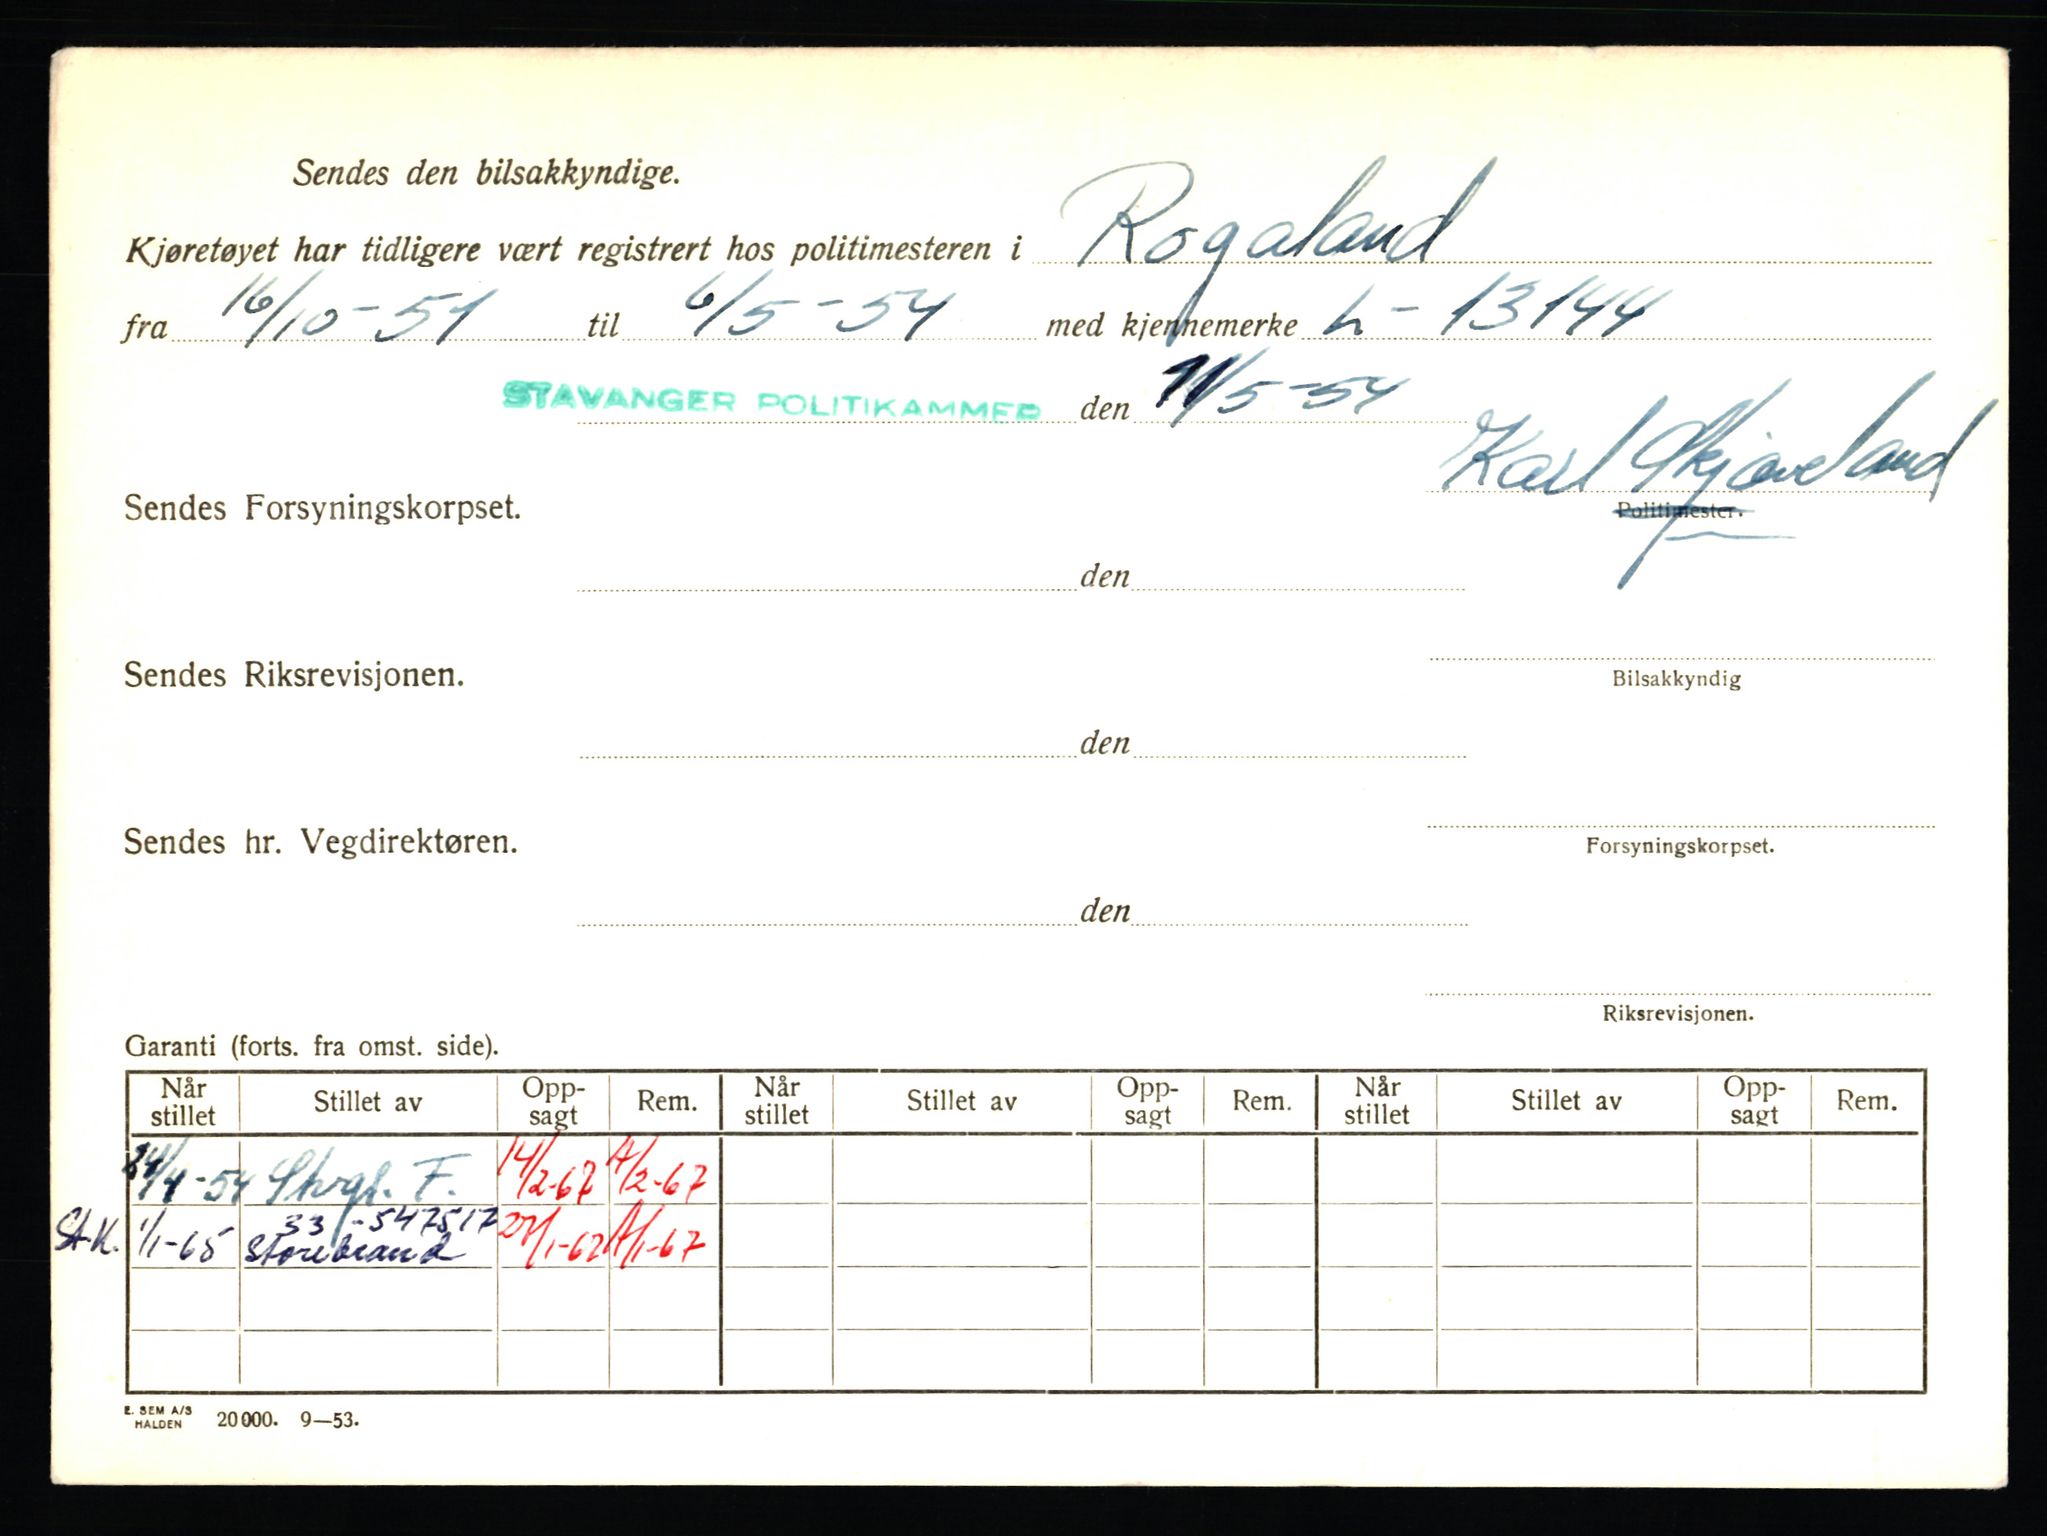 Sendes den bilsakkyndige.
Kjøretøyet har tidligere vært registrert hos politimesteren i Rogaland
fra 16/10-51 til 6/5-54 med kjennemerke L-13144
STAVANGER POLITIKAMMER den 11/5-54
Karl Skjæveland
Sendes Forsyningskorpset.
Politimester.
den
Sendes Riksrevisjonen.
Bilsakkyndig
den
Sendes hr. Vegdirektøren.
Forsyningskorpset.
den
Riksrevisjonen.
Garanti (forts. fra omst. side).
Når stillet Stillet av Opp-sagt Rem. Når stillet Stillet av Opp-sagt Rem. Når stillet Stillet av Opp-sagt Rem.
/4-54 F. 14/2-67 /2-67
33 -547517
St.K. 1/1-65 Storebrand /1-67 /1-67
E. SEM A/S
HALDEN 20000. 9—53.